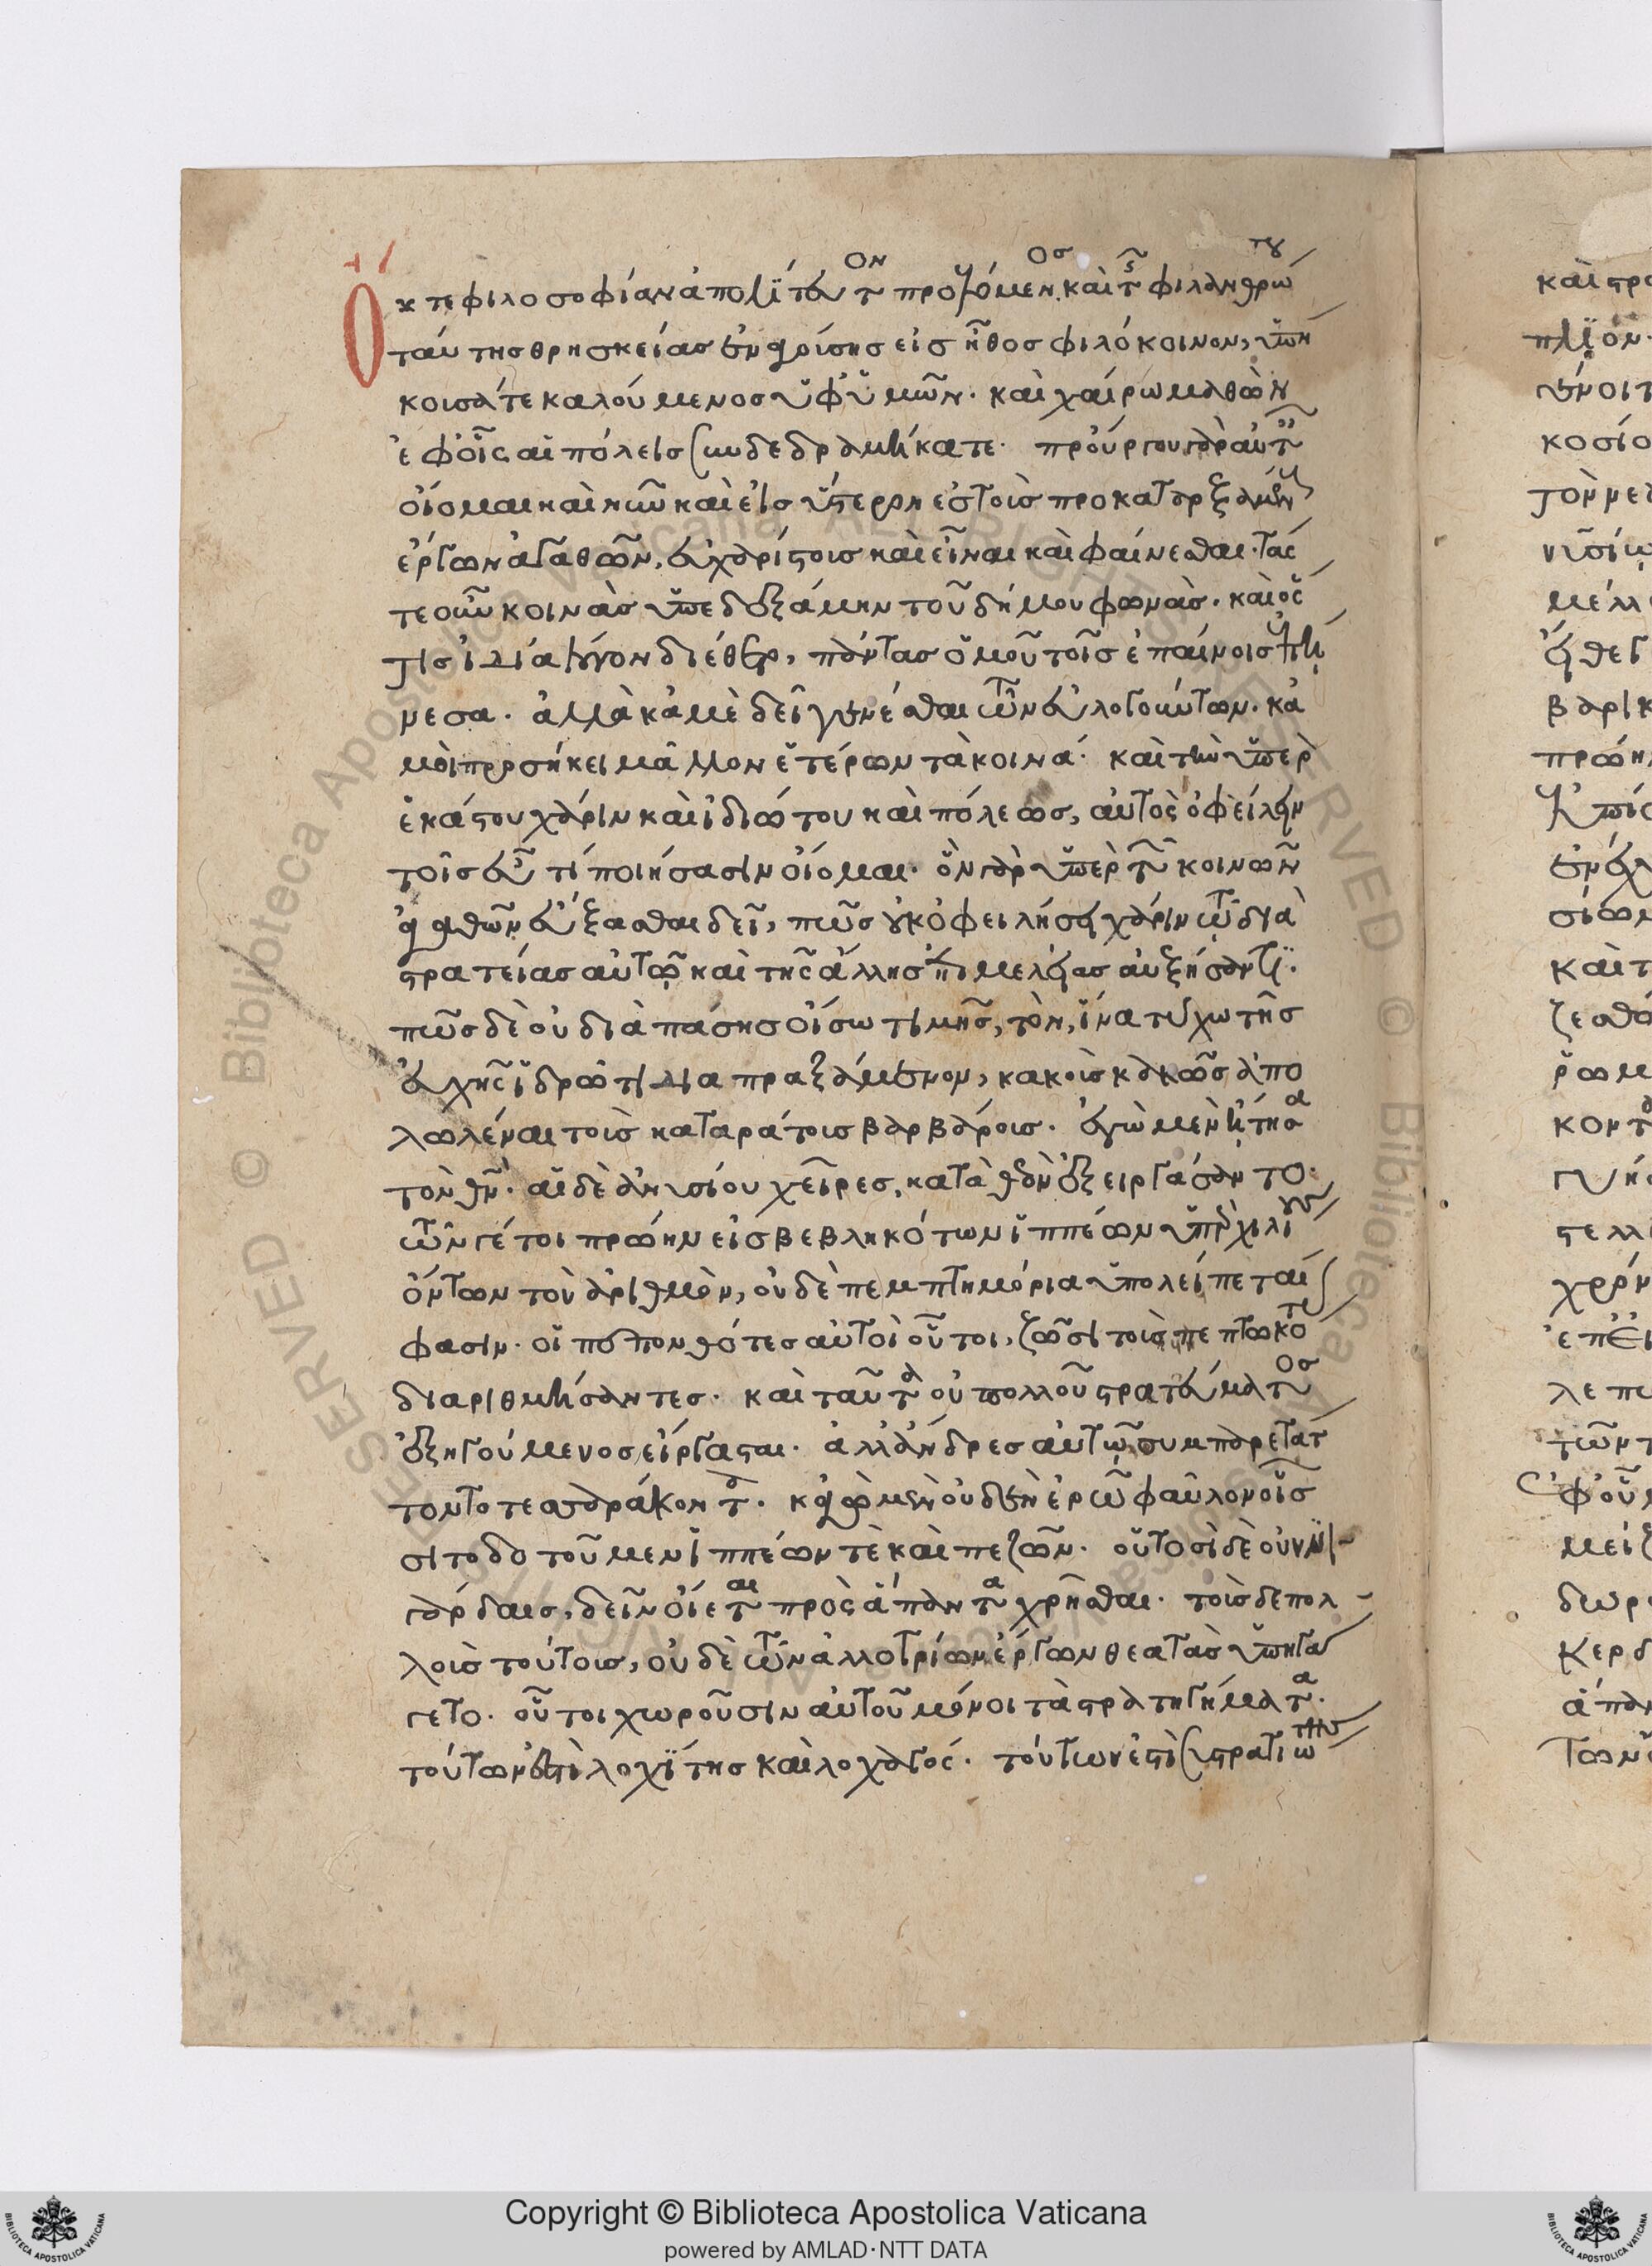 Οὔτε φιλοσοφίαν ἀπολίτευτον προελόμενος, καὶ τῆς φιλανθρω
ταύτης θρησκείας ἐναγούσης εἰς ἦθος φιλόκοινον, ὑπή
κουσά τε καλούμενος ὑφ' ὑμῶν. καὶ χαίρω μαθὼν
ἐφ' οἷς αἱ πόλεις συνδεδραμήκατε. προὔργου γὰρ αὐταῖς
οἴομαι καὶ νῦν καὶ εἰς ὕστερον ἐς τοὺς προκαταρξαμένους
ἔργων ἀγαθῶν, εὐχαρίστοις καὶ εἶναι καὶ φαίνεσθαι. τάς
τε οὖν κοινὰς ὑπεδεξάμην τοῦ δήμου φωνάς. καὶ ὅς
τις ἰδίᾳ λόγον διέθετο, πάντας ὁμοῦ τοῖς ἐπαίνοις ἐπῄ
νεσα. ἀλλὰ κἀμὲ δεῖ γενέσθαι τῶν εὐλογούντων. κἀ
μοὶ προσήκει μᾶλλον ἑτέρων τὰ κοινά. καὶ τὴν ὑπὲρ
ἑκάστου χάριν καὶ ἰδιώτου καὶ πόλεως, αὐτὸς ὀφείλειν
τοῖς εὖ τι ποιήσασιν οἴομαι. ὃν γὰρ ὑπὲρ τῶν κοινῶν
ἀγαθῶν εὔξασθαι δεῖ, πῶς οὐκ ὀφειλήσει χάριν τῷ διὰ
στρατείας αὐτῷ καὶ τῆς ἄλλης ἐπιμελείας αὐξήσαντι.
πῶς δὲ οὐ διὰ πάσης οἴσω τιμῆς, τὸν, ἵνα τύχω τῆς
εὐχῆς ἱδρῶτι διαπραξάμενον, κακοὺς κακῶς ἀπο
λωλέναι τοὺς καταράτους βαρβάρους. ἐγὼ μὲν ᾔτησα
τὸν θν. αἱ δὲ ἀνυσίου χεῖρες, κατὰ θεὸν ἐξειργάσαντο.
τῶν γέ τοι πρώην εἰσβεβληκότων ἱππέων ὑπὲρ χιλίους
ὄντων τὸν ἀριθμὸν, οὐδὲ πεμπτημόρια ὑπολείπεταί
φασιν. οἱ πεπονθότες αὐτοὶ οὗτοι, ζῶσι τοὺς πεπτωκότας
διαριθμήσαντες. καὶ ταῦτα οὐ πολλοῦ στρατεύματος
ἐξηγούμενος εἴργασται. ἀλλ' ἄνδρες αὐτῷ συμπαρετάτ
τοντο τεσσαράκοντα. κἀγὼ μὲν οὐδὲν ἐρῶ φαῦλον οἷς
σιτοδοτοῦμεν ἱππέων τὲ καὶ πεζῶν. οὑτοσὶ δὲ οὐννι
γάρδαις, δεῖν οἴεται πρὸς ἅπαντα χρῆσθαι. τοῖς δὲ πολ
λοῖς τούτοις, οὐδὲ τῶν ἀλλοτρίων ἔργων θεατὰς ὑπηγά
γετο. οὗτοι χωροῦσιν αὐτοῦ μόνοι τὰ στρατηγήματα.
τούτων ἐστὶ λοχίτης καὶ λοχαγός. τούτων ἐστὶ στρατιώτης